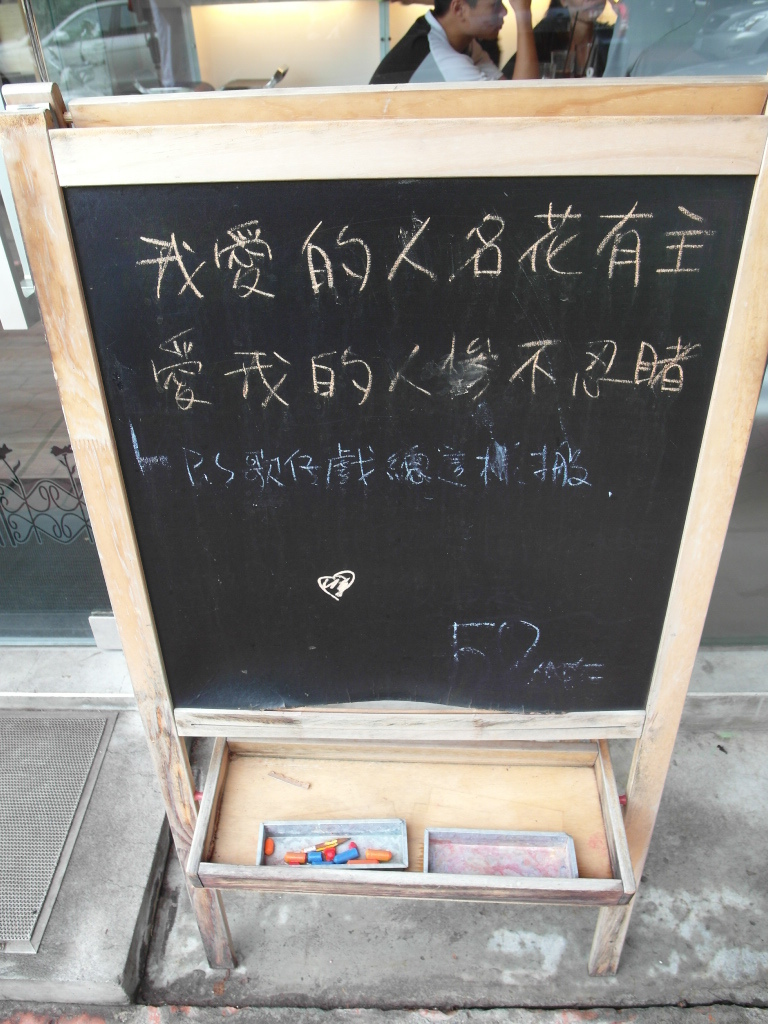 我愛的人名花有主
愛我的人慘不忍睹
P.S歌仔戲總這樣搬